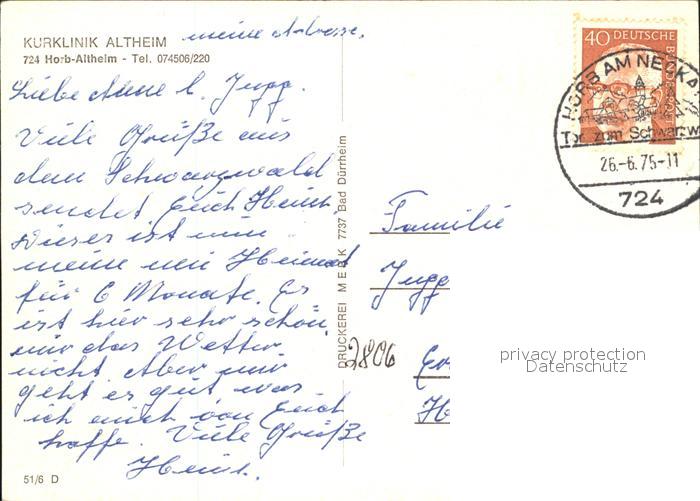 meine Adresse.
KURKLINIK ALTHEIM
724 Horb-Altheim - Tel. 074506/220
Liebe Anne u. Jupp.
Viele Grüße aus
dem Schwarzwald
sendet Euch Heini.
Dieser ist nun
meine neu Heimat
für 6 Monate. Es
ist hier sehr schön
nur das Wetter
nicht. Aber mir
geht es gut was
ich auch von Euch
hoffe. Viele Grüße
Heini.
51/6 D
DRUCKEREI MERK 7737 Bad Dürrheim
40 DEUTSCHE BUNDESPOST
HORB AM NECKA
Tor zum Schwarzw
26.-6.75-11
724
Familie
Jupp
2806
privacy protection
Datenschutz